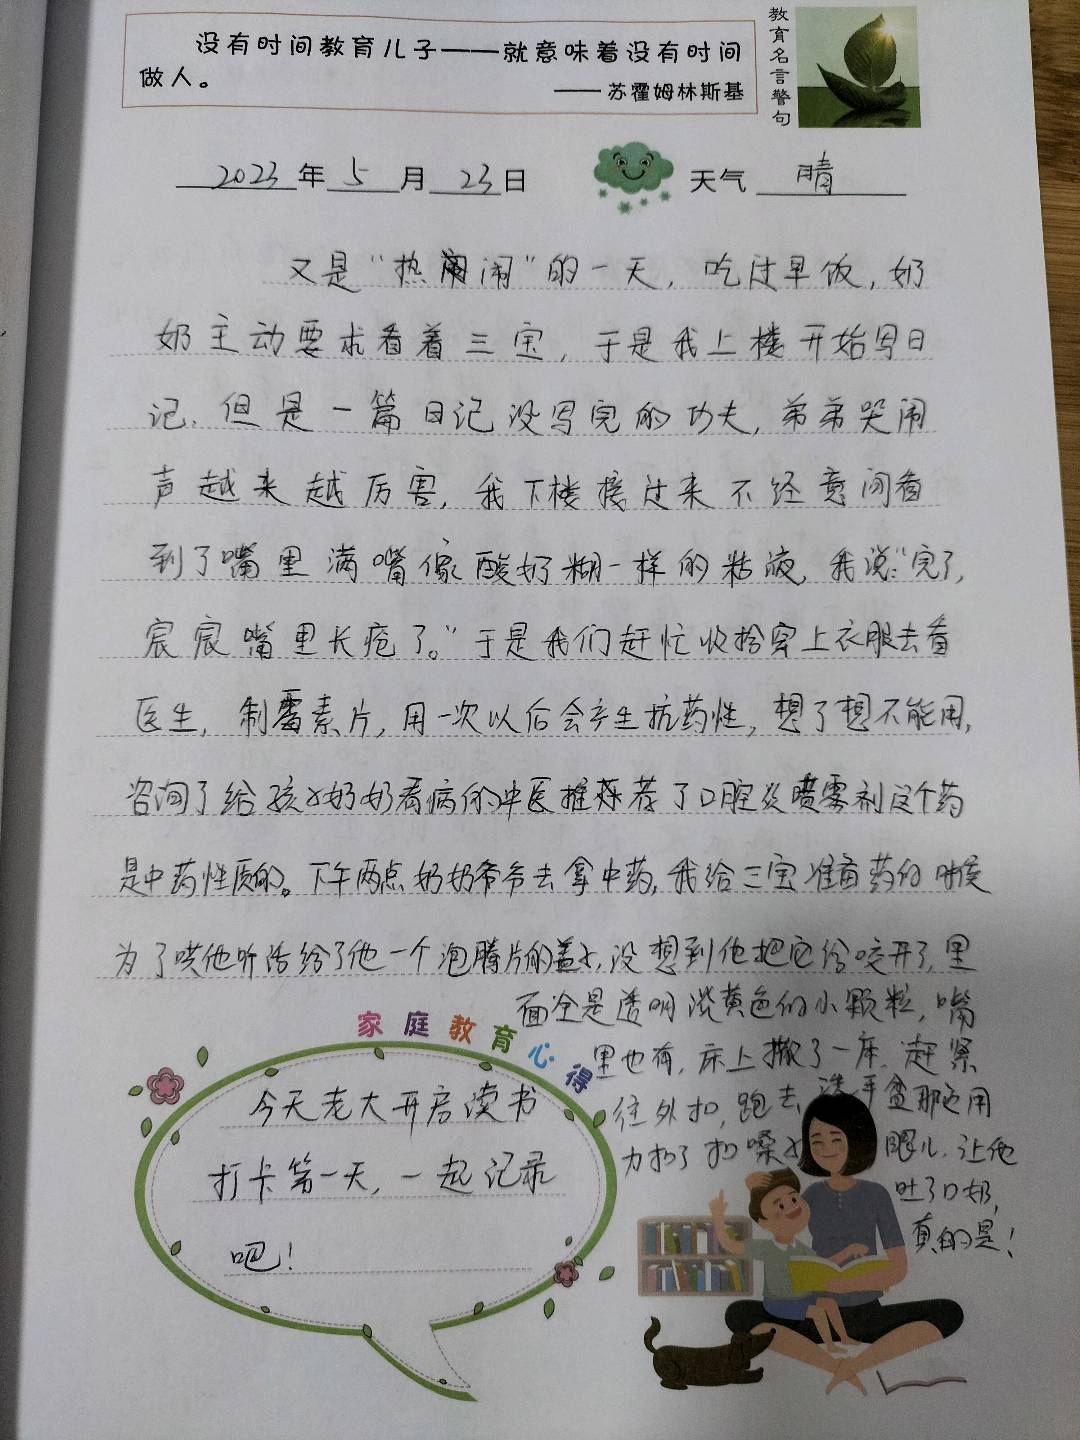 没有时间教育儿子——就意味着没有时间
做人。
——苏霍姆林斯基
教育名言警句
2023年5月23日 天气 晴
又是“热闹”的一天，吃过早饭，奶
奶主动要求看着三宝，于是我上楼开始写日
记，但是一篇日记没写完的功夫，弟弟哭闹
声越来越厉害，我下楼接过来不经意间看
到了嘴里满嘴像酸奶糊一样的粘液，我说：“完了，
宸宸嘴里长疮了。”于是我们赶忙收拾穿上衣服去看
医生，制霉素片，用一次以后会产生抗药性，想了想不能用，
咨询了给孩子奶奶看病的中医推荐了口腔炎喷雾剂这个药
是中药性质的。下午两点奶奶爷爷去拿中药，我给三宝准备药的时候
为了哄他听话给了他一个泡腾片的盖子，没想到他把它给咬开了，里
面全是透明淡黄色的小颗粒，嘴
里也有，床上撒了一床，赶紧
往外扣，跑去洗手盆那边用
力扣了扣嗓子眼儿，让他
吐了口奶，
真的是！
家庭教育心得
今天老大开启读书
打卡第一天，一起记录
吧！